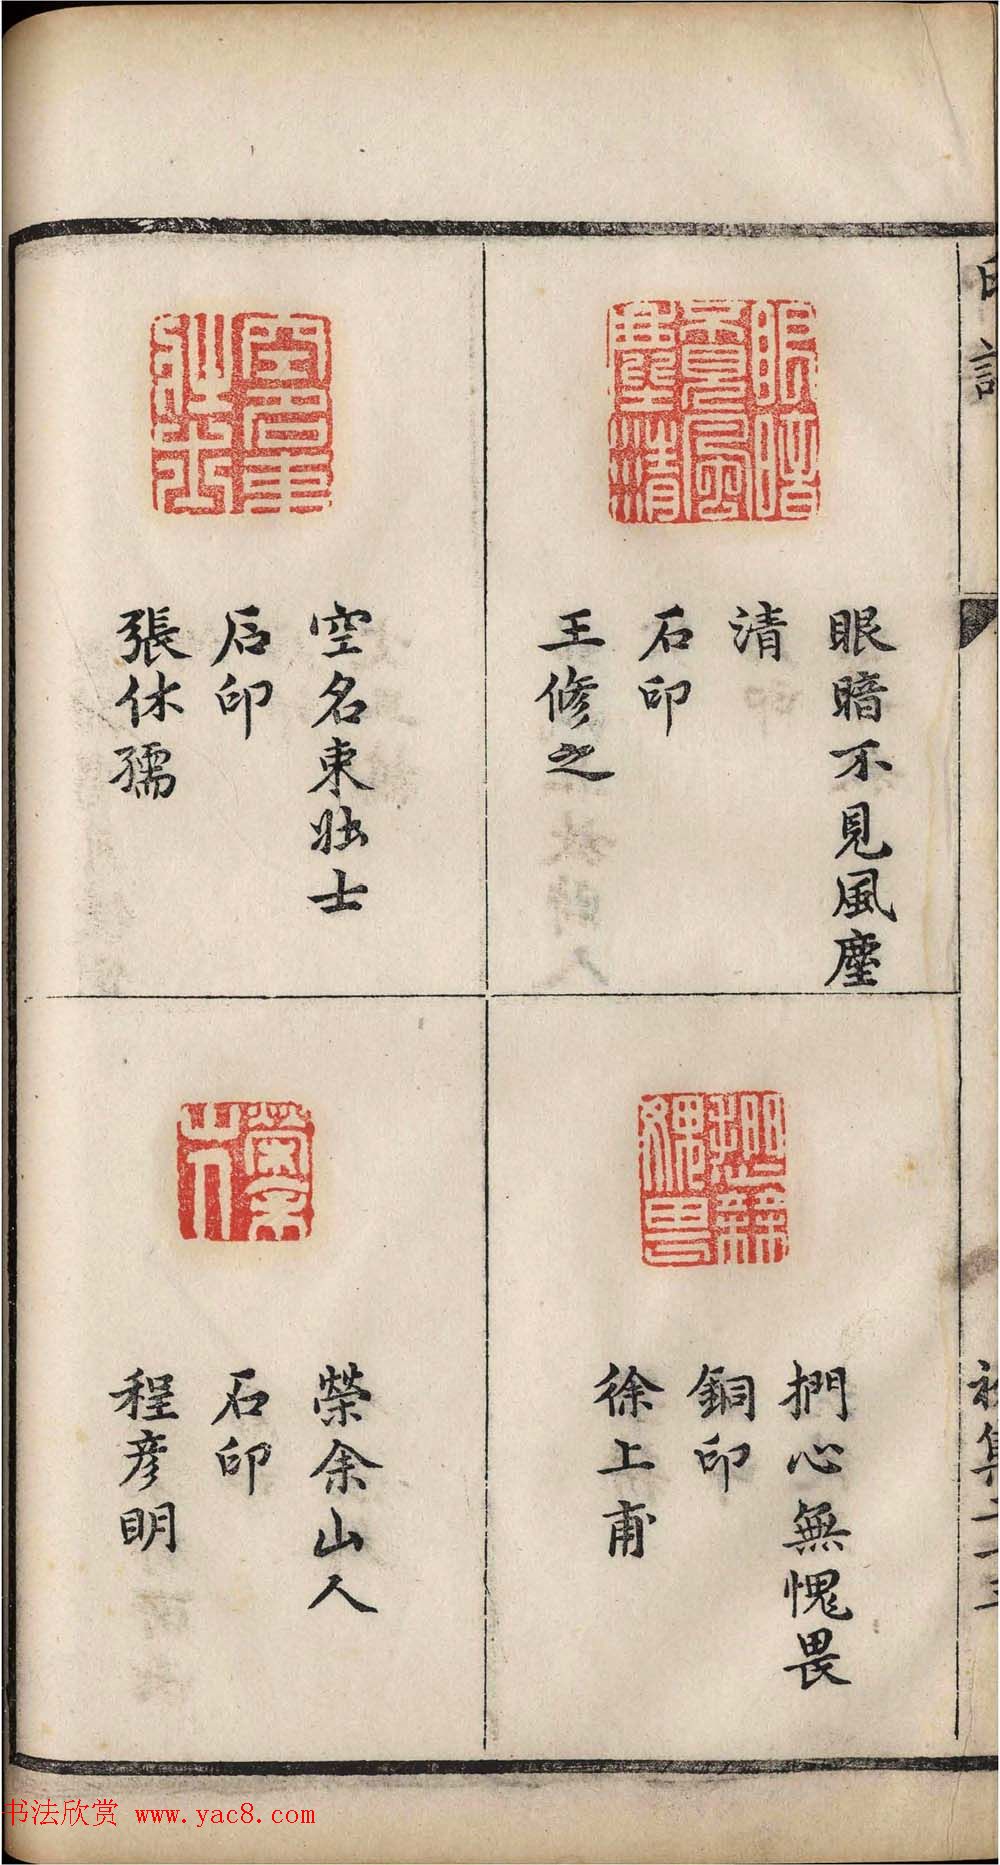 眼暗不見風塵
清
石印
王修之
捫心無愧畏
銅印
徐上甫
空名東壯士
石印
張休孺
榮余山人
石印
程彦明
书法欣赏 www.yac8.com